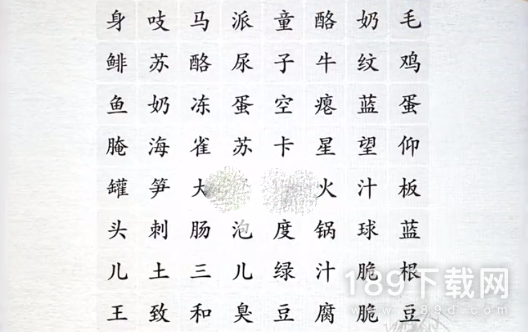 身 吱 马 派 童 酪 奶 毛
鲱 苏 酪 尿 子 牛 纹 鸡
鱼 奶 冻 蛋 空 瘪 蓝 蛋
腌 海 雀 苏 卡 星 望 仰
罐 笋 大 火 汁 板
头 刺 肠 泡 度 锅 球 蓝
儿 土 三 儿 绿 汁 脆 根
王 致 和 臭 豆 腐 脆 豆
189下载网